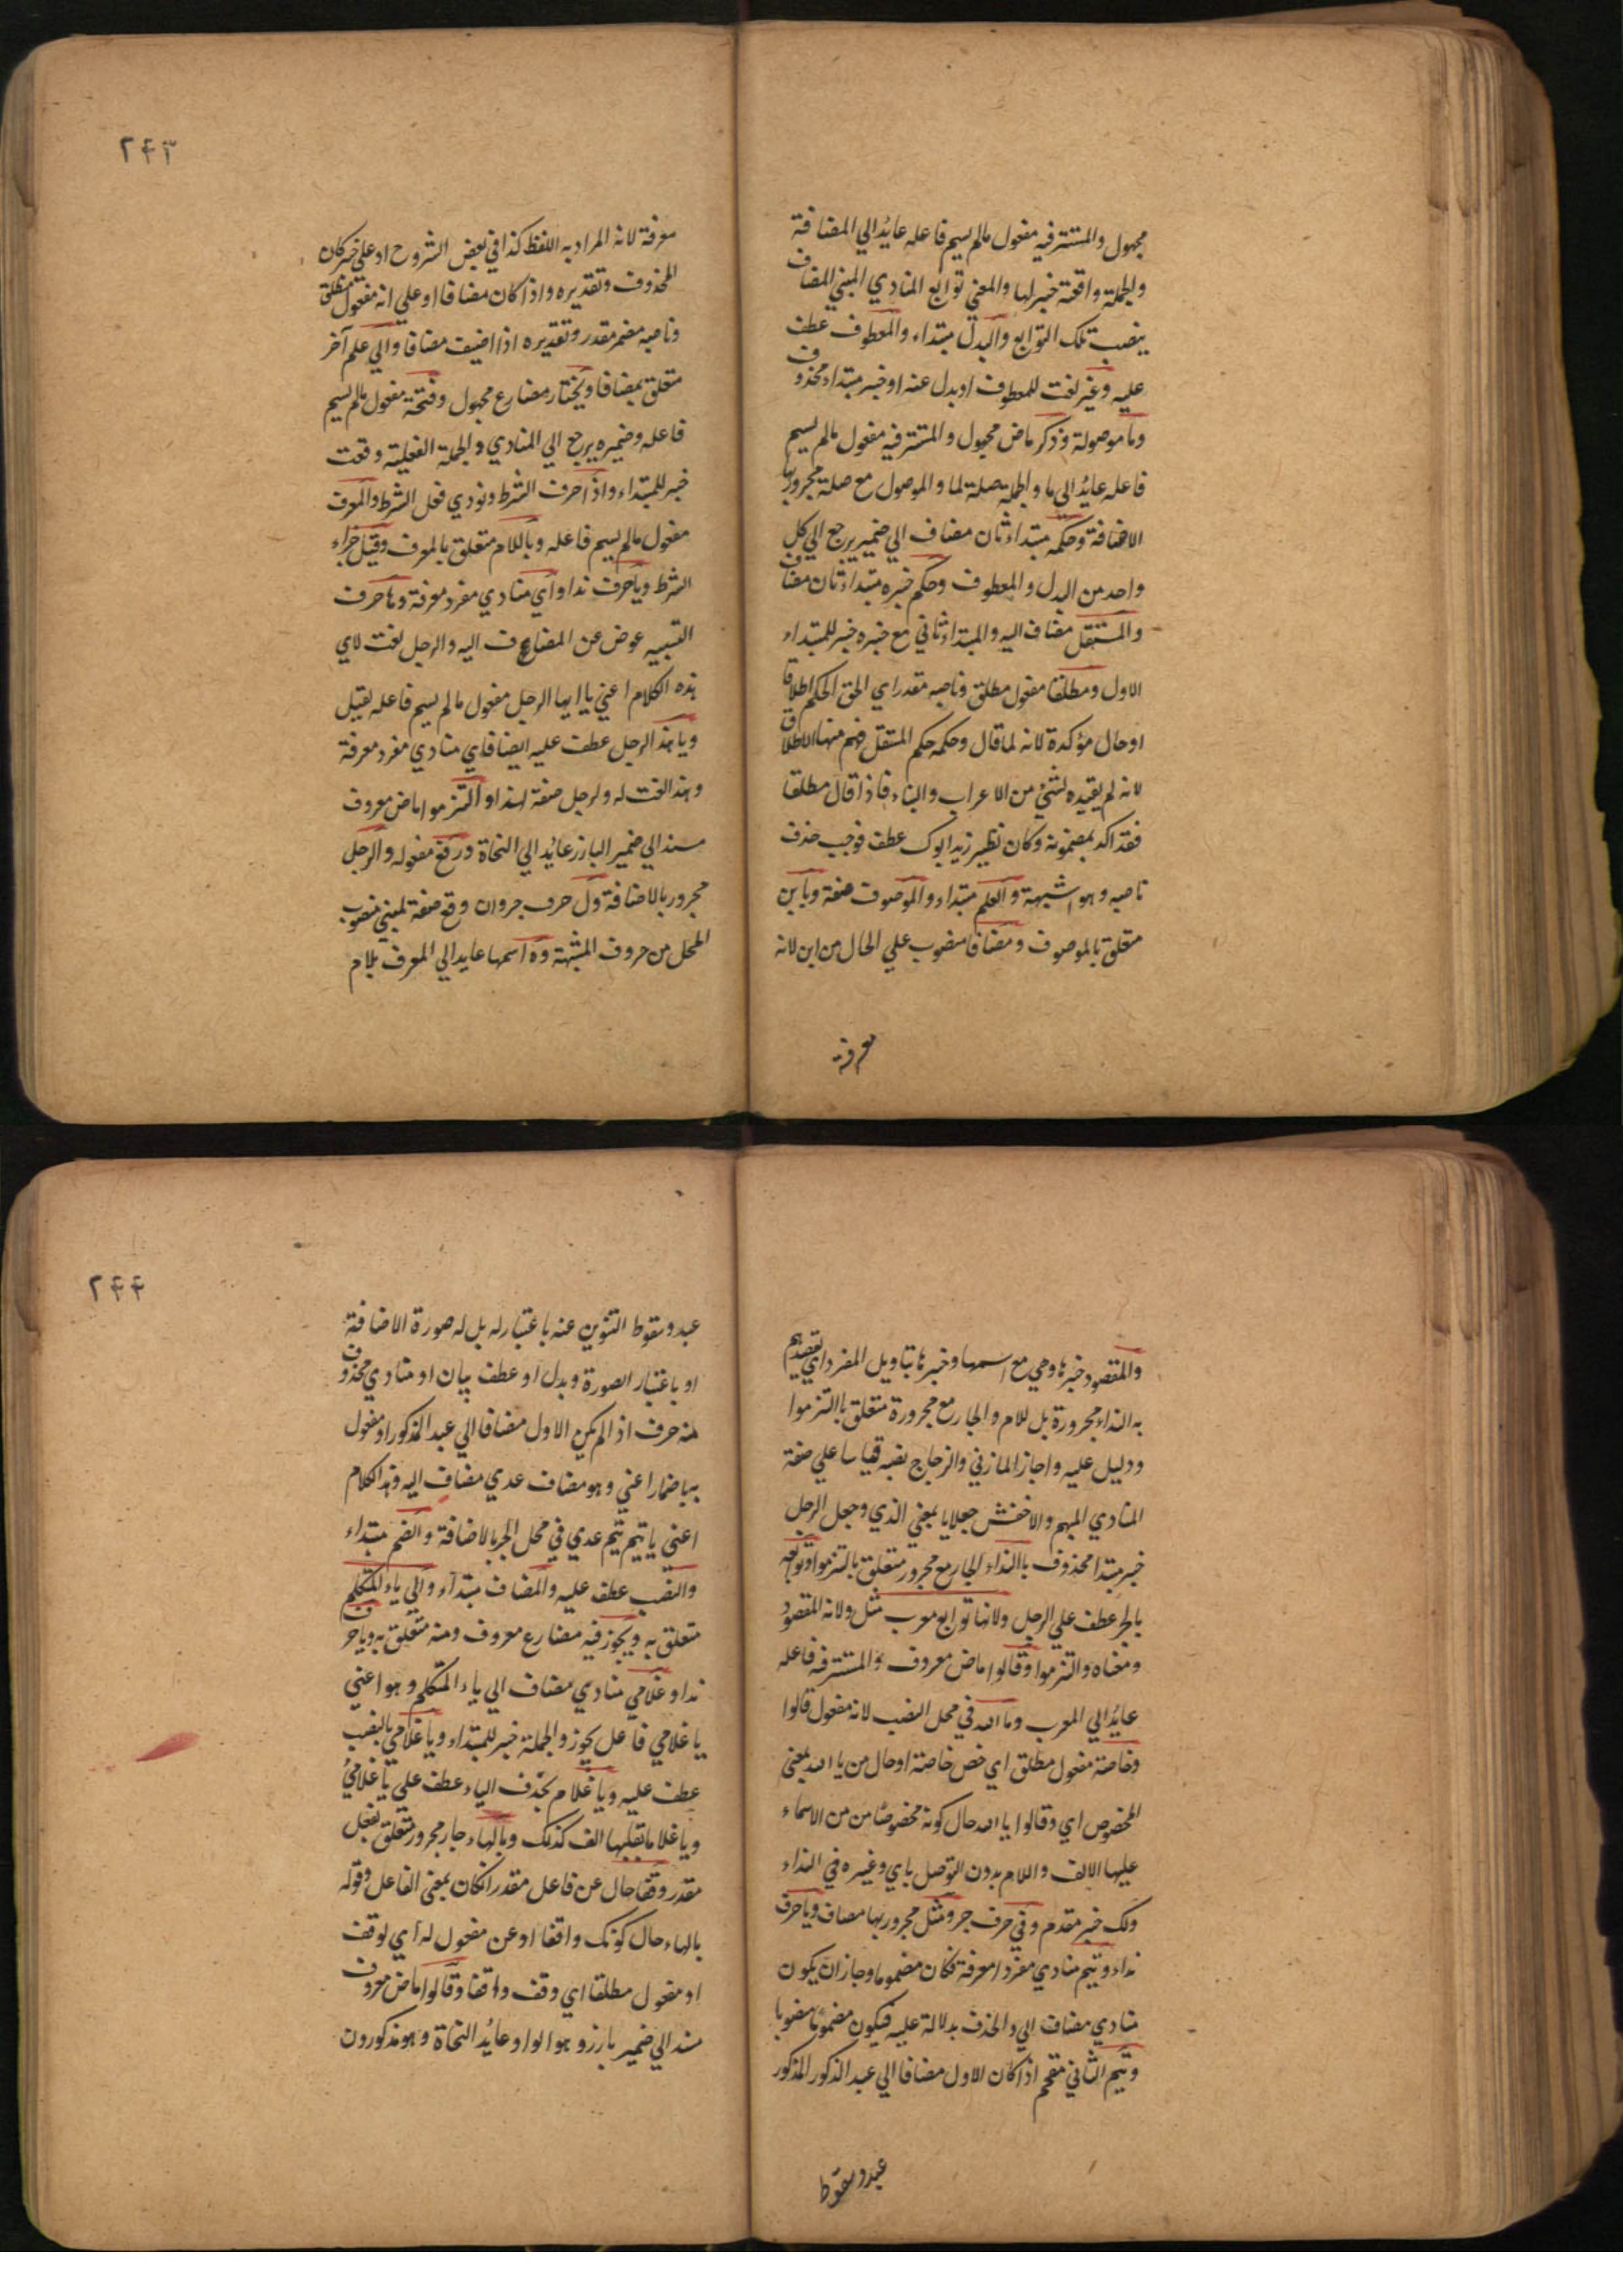 مجهول والمستتر فيه مفعول مالم يسم فاعله عايد الي المضافة
والجملة واقعة خبر لها والمعني توابع المنادي المبني المضاف
ينصب تلك التوابع والبدل مبتداء والمعطوف عطف
عليه وغير نعت للمعطوف او بدل عنه او خبر مبتداء محذوف
وما موصولة وذكر ماض مجهول والمستتر فيه مفعول مالم يسم
فاعله عايد الي ما والجملة صلة لما والموصول مع صلة مجرور بها
الاضافة وحكمه مبتداء ثان مضاف الي ضمير يرجع الي كل
واحد من البدل والمعطوف وحكم خبره مبتداء ثان مضاف
والمستقل مضاف اليه والمبتداء ثاني مع خبره خبر للمبتداء
الاول ومطلقا مفعول مطلق وناصبه مقدر اي الحق الحكم اطلاقا
او حال مؤكدة لانه لما قال وحكمه حكم المستقل فهم منها الاطلاق
لانه لم يقيده لشيئ من الاعراب والبناء فاذا قال مطلقا
فقد اكد بمضمونه وكان نظير زيد ابوك عطف فوجب حذف
ناصبه وهو اشبهة والعلم مبتداء والموصوف صفة وبابن
متعلق بالموصوف ومضافا منصوب علي الحال من ابن لانه
معرفة
٢٤٣
معرفة لانه المراد به اللفظ كذا في بعض الشروح او علي خبر كان
المحذوف وتقديره واذا كان مضافا او علي انه مفعول مطلق
وناصبه مضمر مقدر وتقديره اذا اضيف مضافا والي علم آخر
متعلق بمضافا ويختار مضارع مجهول وفتحة مفعول مالم يسم
فاعله وضميره يرجع الي المنادي والجملة الفعلية وقعت
خبر للمبتداء واذا حرف الشرط ونودي فعل الشرط والمعرف
مفعول مالم يسم فاعله وباللام متعلق بالمعرف وقيل جزاء
الشرط ويا حرف نداو اي منادي مفرد معرفة وها حرف
التنبيه عوض عن المضاف اليه والرجل نعت لاي
هذه الكلام اعني يا ايها الرجل مفعول مالم يسم فاعله لقيل
ويا هذا الرجل عطف عليه ايضا فاي منادي مفرد معرفة
وهذا نعت له والرجل صفة لهذا والتزموا ماض معروف
مسند الي ضمير البارز عايد الي النحاة ورفع مفعوله والرجل
مجرور بالاضافة ول حرف جر وان وقع صفة لمبني منصوب
المحل من حروف المشبهة وه اسمها عايد الي المعرف بلام
والمقصود خبرها وهي مع اسمها وخبرها بتاويل المفرد اي لتقديم
به النداء مجرورة بل للام والجار مع مجرورة متعلق بالتزموا
ودليل عليه واجاز المازني والزجاج نصبه قياسا علي صفة
المنادي المبهم والاخفش جعل ايا بمعني الذي وجعل الرجل
خبر مبتدا محذوف بالنداء الجار مع مجرور متعلق بالتزموا وتوابعه
بالجر عطف علي الرجل ولانها توابع معرب مثل ولانه المقصود
ومعناه والتزموا وقالوا ماض معروف والمستتر فيه فاعله
عايد الي المعرب وما الله في محل النصب لانه مفعول قالوا
وخاصة مفعول مطلق اي خص خاصة او حال من يا الله بمعني
المخصوص اي وقالوا يا الله حال كونه مخصوصا من من الاسماء
عليها الالف واللام بدون التوصل باي وغيره في النداء
ولك خبر مقدم وفي حرف جر ومثل مجرور بها مضاف ويا حرف
نداء وتيم منادي مفردا معرفة فكان مضموما وجاز ان يكون
منادي مضاف الي والحذف بدلالة عليه فيكون مضموما منصوبا
وتيم الثاني مقحم اذا كان الاول مضافا الي عبد الذكور المذكور
عبد وسقوط
٢٤٤
عبد وسقوط التنوين عنه باعتبار له بل له صورة الاضافة
او باعتبار الصورة وبدل او عطف بيان او منادي محذوف
منه حرف اذا لم يكن الاول مضافا الي عبد المذكور او مفعول
بها ضمار اعني وهو مضاف عدي مضاف اليه وهذا الكلام
اعني يا تيم تيم عدي في محل الجر بالاضافة والضم مبتداء
والنصب عطف عليه والمضاف مبتداء والي ياء المتكلم
متعلق به ويجوز فيه مضارع معروف ومنه متعلق به ويا حرف
نداو غلامي منادي مضاف الي ياء المتكلم وهو اعني
يا غلامي فاعل يجوز والجملة خبر للمبتداء ويا غلامي بالنصب
عطف عليه ويا غلام بحذف الياء عطف علي يا غلامي
ويا غلاما بقلبها الف كذلك وبالهاء جار مجرور متعلق بفعل
مقدر وقفا حال عن فاعل مقدر انكان بمعني الفاعل وقوله
بالهاء حال كونك واقفا او عن مفعول له اي لوقف
او مفعول مطلقا اي وقف واقفا وقالوا ماض معروف
مسند الي ضمير بارز وهو الواو عايد النحاة وهو مذكورون